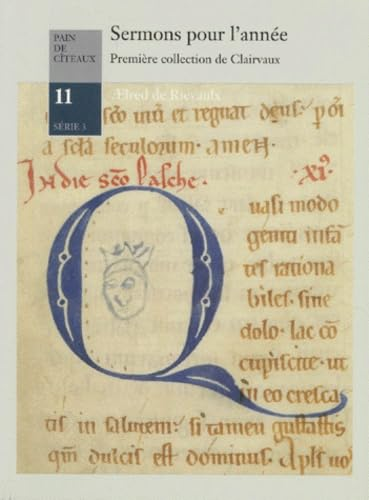 PAIN
DE
CÎTEAUX
11
SÉRIE 3
Sermons pour l'année
Première collection de Clairvaux
Ælred de Rievaulx
sco uiuit et regnat deus. p oi
a scla seculorum. amen.
In die sco pasche. .XI.
Quasi modo
geniti infan
tes rationa
biles. sine
dolo. lac co
cupiscite. ut
in eo cresca
tis in salutem: si tamen gustastis
qm dulcis est dominus.